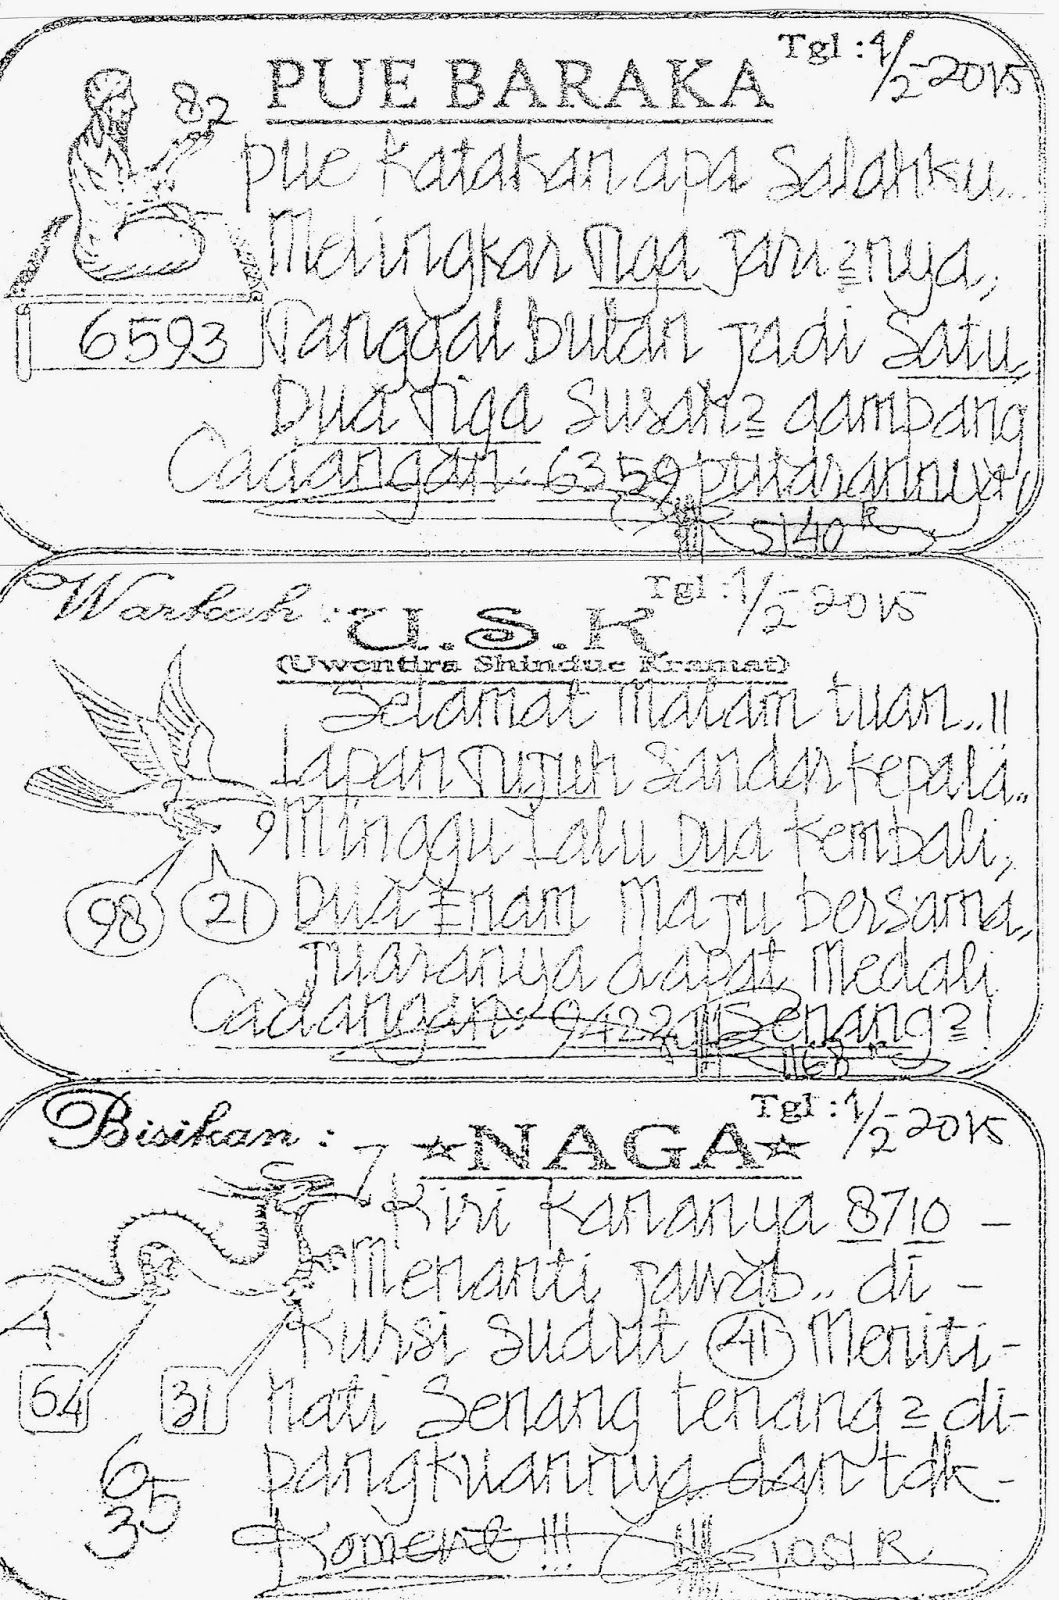 Tgl : 1/2-2015
PUE BARAKA
82
Pue Katakan apa Salahku..
Melingkar Tiga Jari2nya,
6593
Tanggal bulan Jadi Satu,
Dua Tiga Susah2 gampang
Cadangan: 6359 putarannya,
5140 R
Warkah :
Tgl : 1/2-2015
U.S.K
(Uwentira Shindue Kramat)
Selamat Malam tuan..!!
Lapan Tujuh Sandar Kepala..
9
Minggu Lalu Dua Kembali,
98
21
Dua Enam Maju bersama,
Juaranya dapat Medali
Cadangan: 9422 Senang2!
1168 R
Bisikan :
Tgl : 1/2-2015
NAGA
7
Kiri Kananya 8710 -
Menanti Jawab.. di -
1
Kursi Sudut 41 Meniti-
64
31
hati Senang tenang2 di-
6
35
3
pangkuannya dan tak-
Koment !!!
1051 R